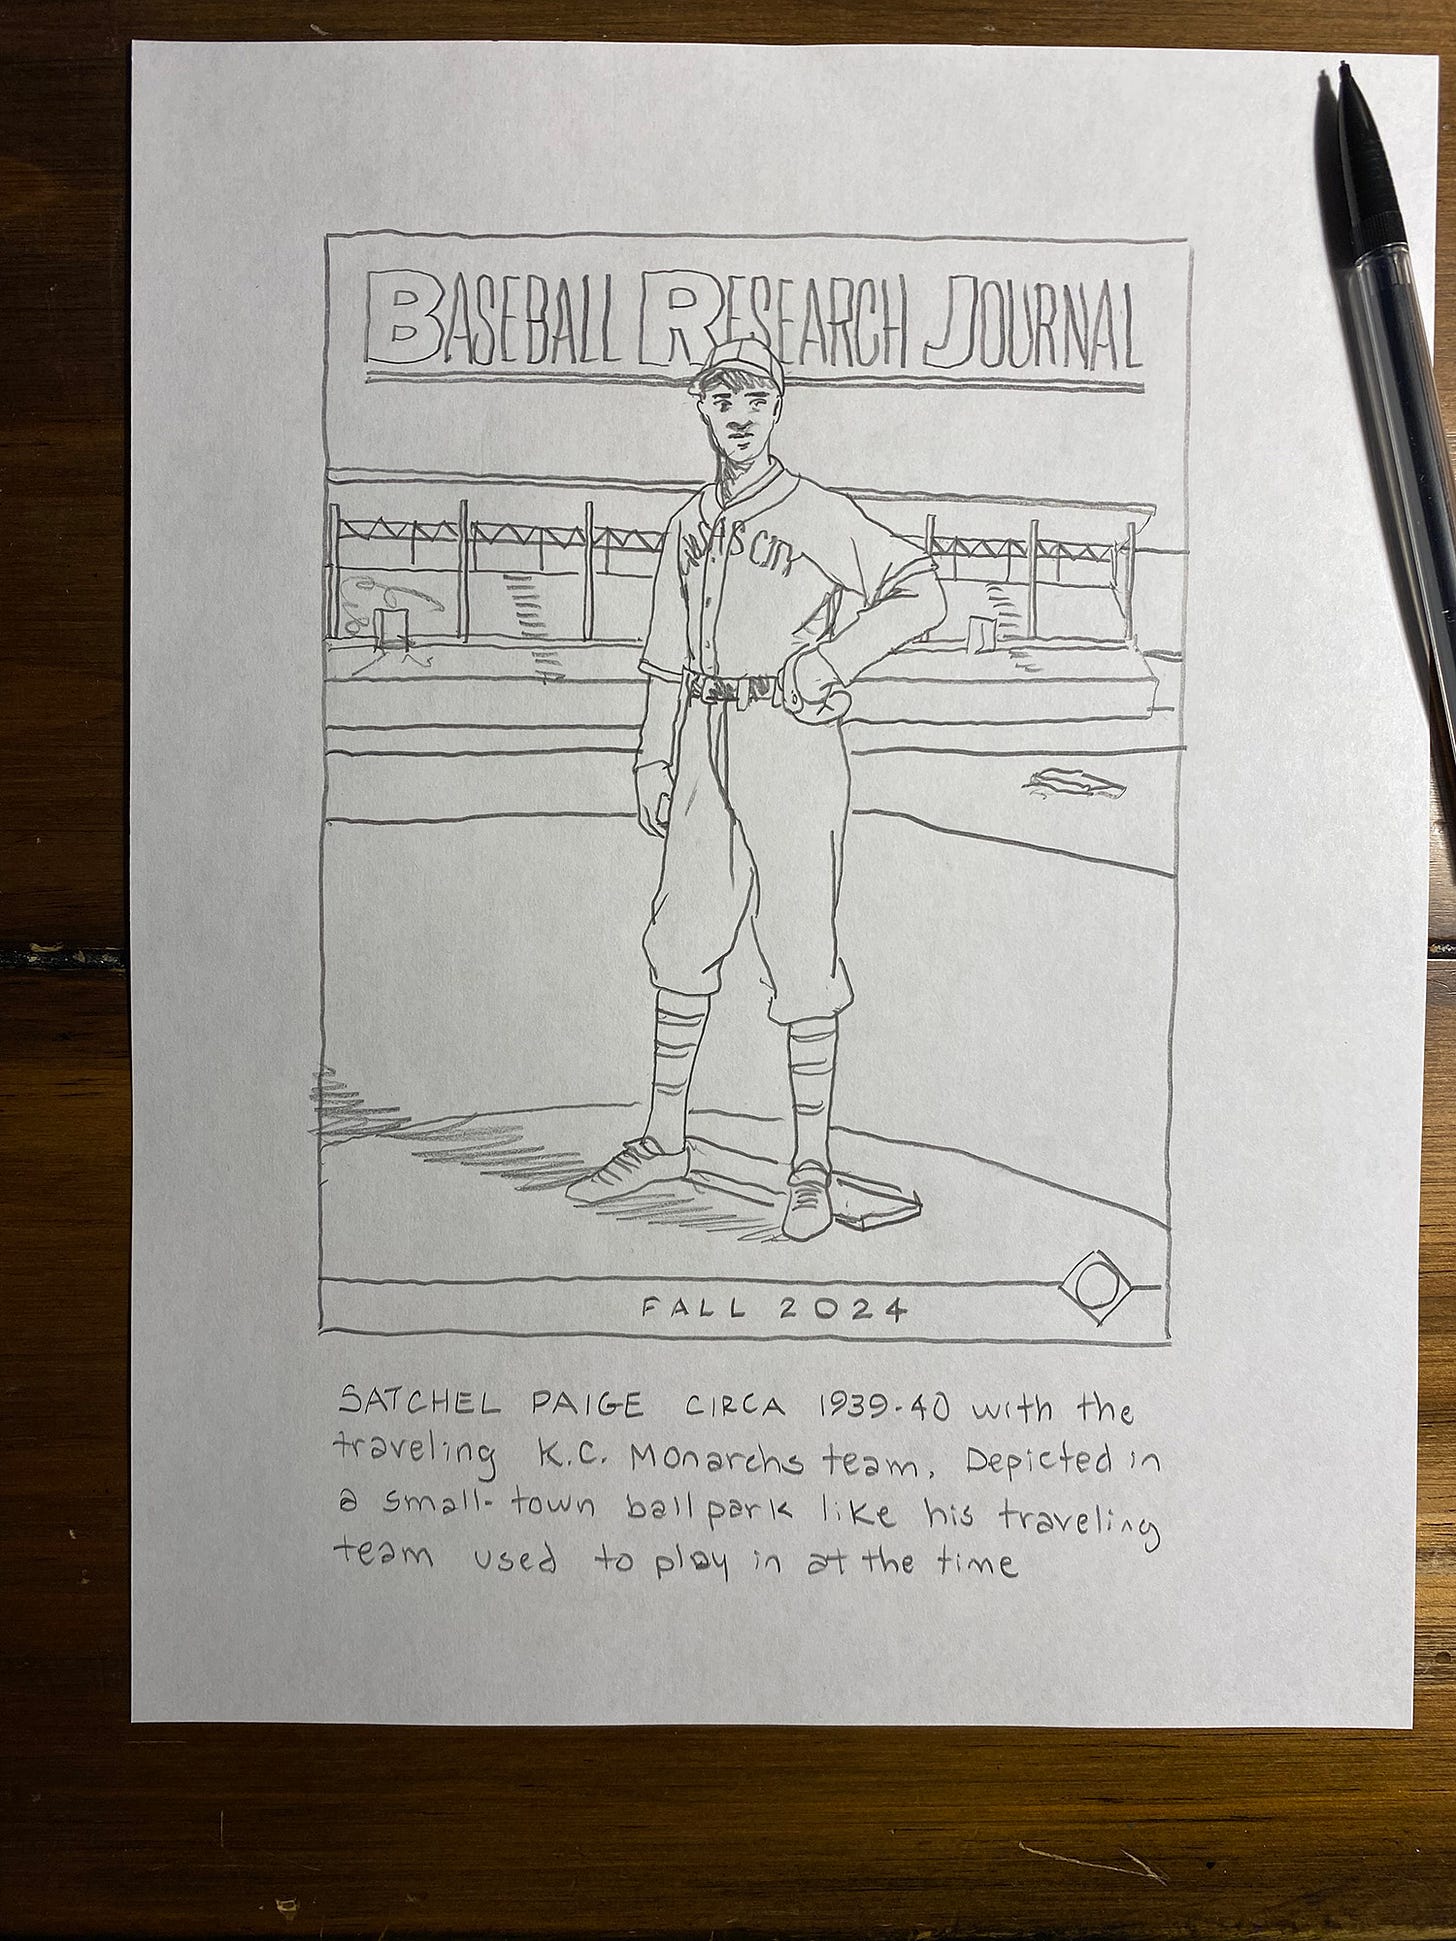 BASEBALL RESEARCH JOURNAL
KANSAS CITY
FALL 2024
SATCHEL PAIGE CIRCA 1939-40 with the
traveling K.C. Monarchs team. Depicted in
a small-town ballpark like his traveling
team used to play in at the time